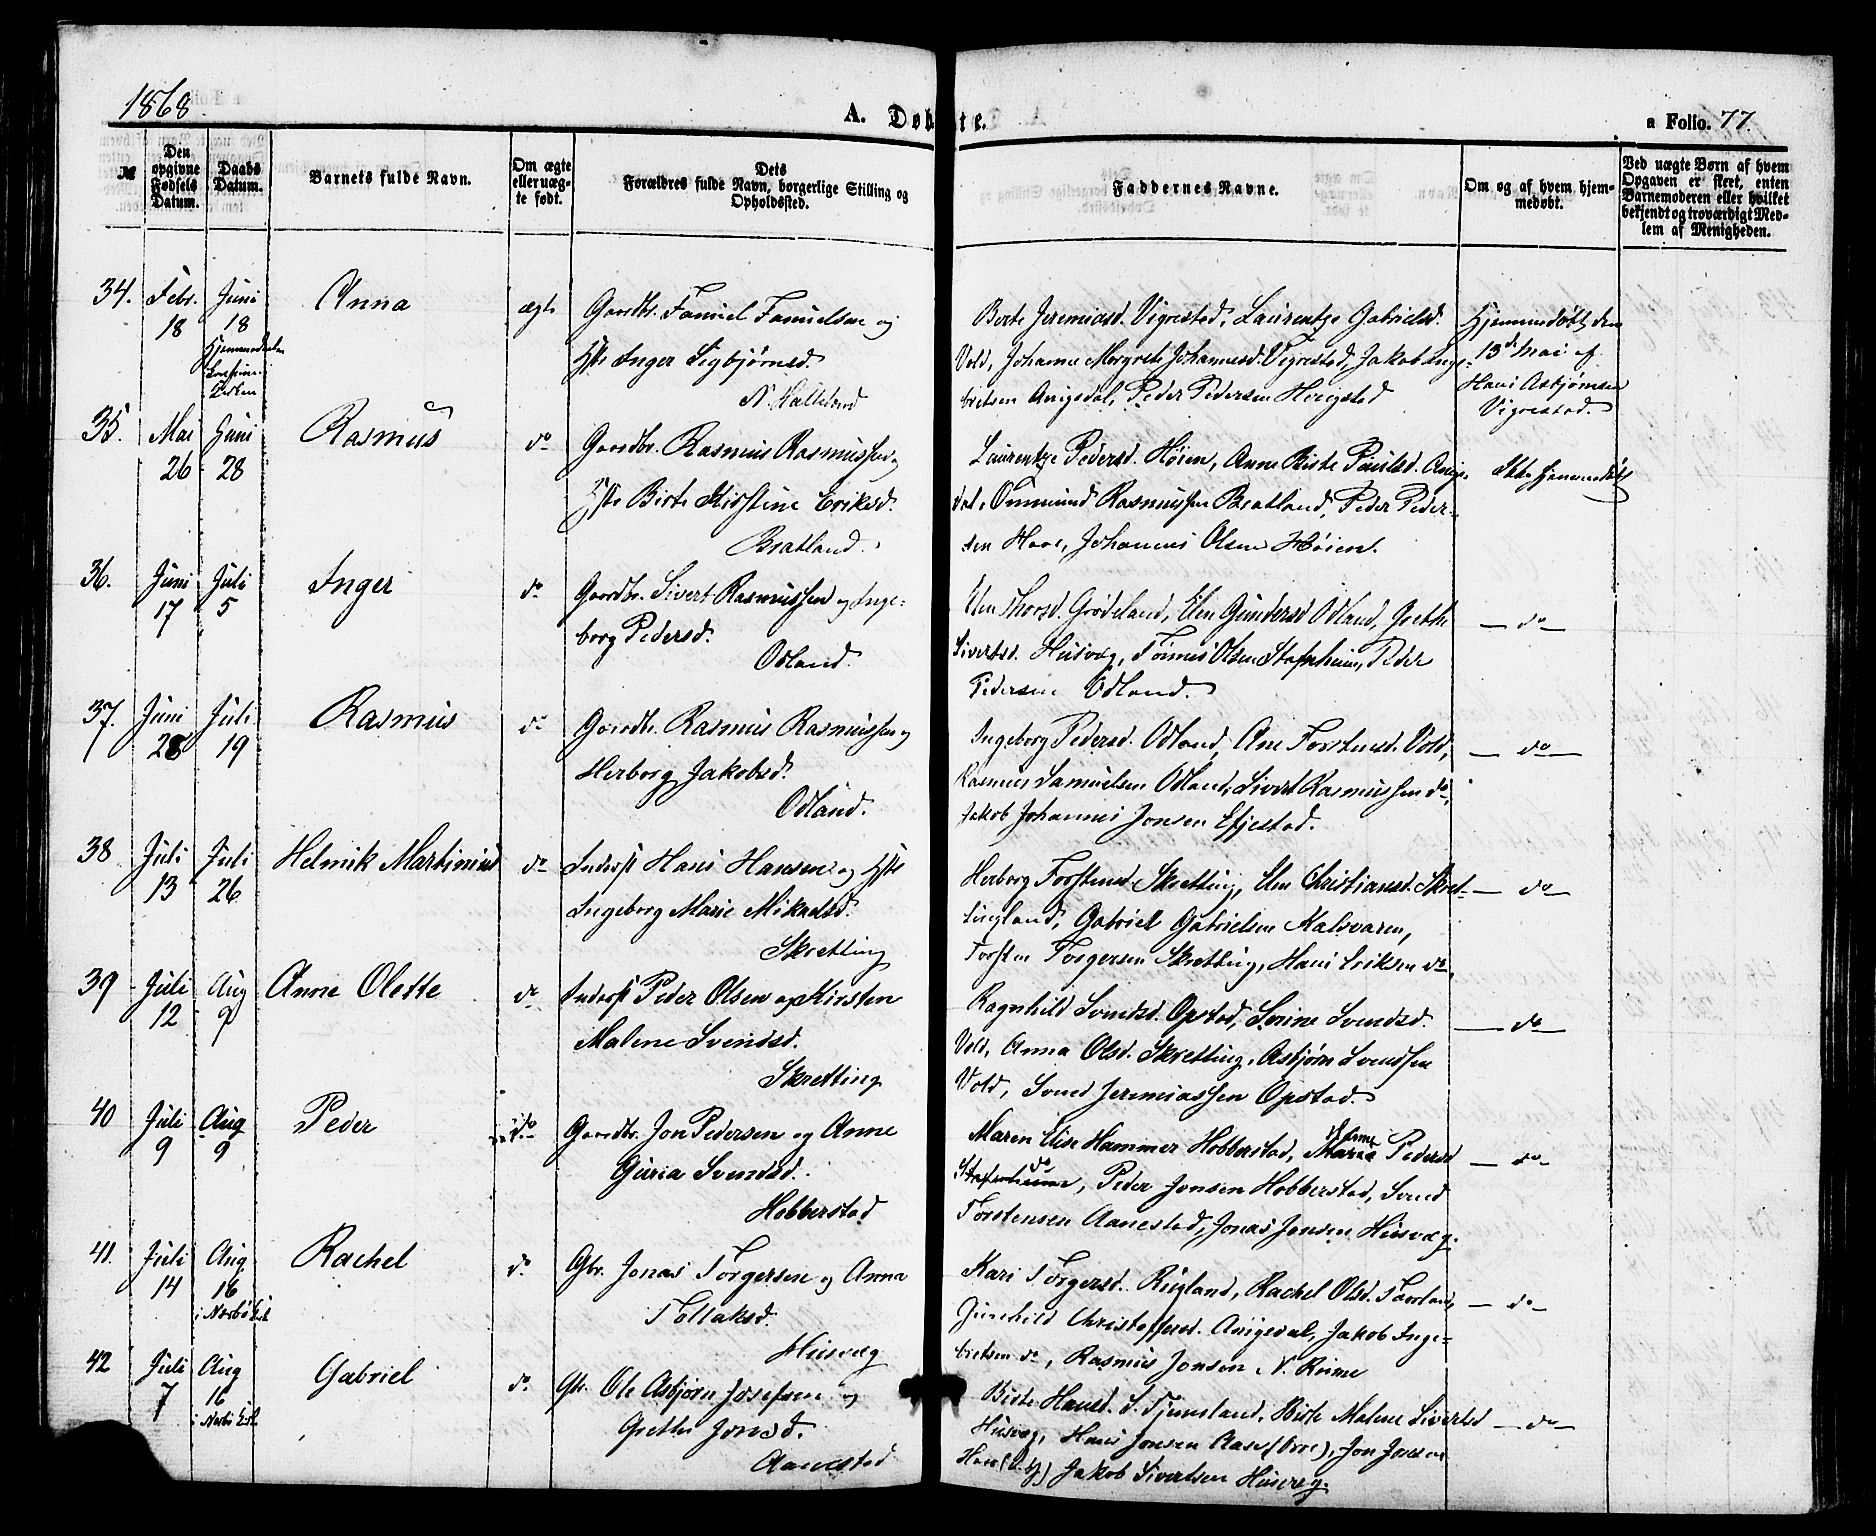 1868.
A. Døbte.
a Folio. 77.
№
Den opgivne Fødsels Datum.
Daabs Datum.
Barnets fulde Navn.
Om ægte eller uægte født.
Dets Forældres fulde Navn, borgerlige Stilling og Opholdssted.
Faddernes Navne.
Om og af hvem hjemmedøbt.
Ved uægte Børn af hvem Opgaven er skeet, enten Barnemoderen eller hvilket bekjendt og troværdigt Medlem af Menigheden.
34. Febr. 18 Juni 18
Anna
ægte
Gaardbr. Samuel Samuelsen og
Hstr Inger Sigbjørnsd.
N. Halleland
Berte Jeremiasd. Vigrestad, Laurentze Gabrielsd.
Vold, Johanne Margrete Johannesd. Vigrestad, Jakob Inge-
bretsen Auigedal, Peder Pedersen Herigstad
Hjemmedøbt den
13de Mai af
Hans Asbjørnsen
Vigrestad.
35. Mai 26 Juni 28
Rasmus
do
Gaardbr. Rasmus Rasmussen og
Hstr Birte Kirstine Eriksd.
Bratland.
Laurentze Pedersd. Høien, Anne Birte Paulsd. Auige-
dal, Ommund Rasmussen Bratland, Peder Peder-
sen Haar, Johannes Olsen Høien.
Ikke hjemmedøbt
36. Juni 17 Juli 5
Inger
do
Gaardbr. Sivert Rasmussen og Inge-
borg Pedersd.
Odland.
Elen Thorsd. Grødeland, Elen Gundersd Odland, Grethe
Sivertsd. Husvæg, Tønnes Olsen Stafnheim, Peder
Pedersen Odland.
— do —
37. Juni 28 Juli 19
Rasmus
do
Gaardbr. Rasmus Rasmussen og
Herborg Jakobsd.
Odland.
Ingeborg Pedersd. Odland, Ane Torstensd. Vold,
Rasmus Samuelsen Odland, Sivert Rasmussen do,
Jakob Johannes Jonsen Efjestad.
— do —
38 Juli 13 Juli 26
Helmik Martinius
do
Inderst Hans Hansen og Hstr
Ingeborg Marie Mikaelsd.
Skretting
Herborg Torstensd. Skretting, Elen Christiansd. Skret-
tingland, Gabriel Gabrielsen Kalsvaren,
Torsten Torgersen Skretting, Hans Eriksen do
— do —
39 Juli 12 Aug 9
Anne Olette
do
Inderst Peder Olsen og Kirsten
Malene Svendsd.
Skretting
Ragnhild Svendsd. Opstad, Serine Svendsd.
Vold, Anna Olsd. Skretting, Asbjørn Svendsen
Vold, Svend Jeremiassen Opstad.
— do —
40 Juli 9 Aug 9
Peder
do
Gaardbr. Jon Pedersen og Anne
Guria Svendsd.
Hobberstad
Maren Elise Hammer Hobberstad, Marie Pedersd
do, Peder Jonsen Hobberstad, Svend
Torstensen Aanestad, Jonas Jonsen Husvæg.
— do —
41. Juli 14 Aug 16
i Nærbø K.
Rachel
do
Gbr. Jonas Torgersen og Anna
Tollaksd.
Husvæg
Kari Torgersd. Rugland, Rachel Olsd. Tarland,
Gunhild Christoffersd. Auigedal, Jakob Inge-
bretsen do, Rasmus Jonsen N. Reime
— do —
42 Juli 7 Aug 16
i Nærbø K.
Gabriel
do
Gbr. Ole Asbjørn Josefsen og
Grethe Jonsd.
Aanestad
Birte Hansd. S. Tjemsland, Birte Malene Sivertsd
Husvæg, Hans Jonsen Aase (Orre), Jon Jonsen
Jakob Sivertsen Husvæg.
— do —